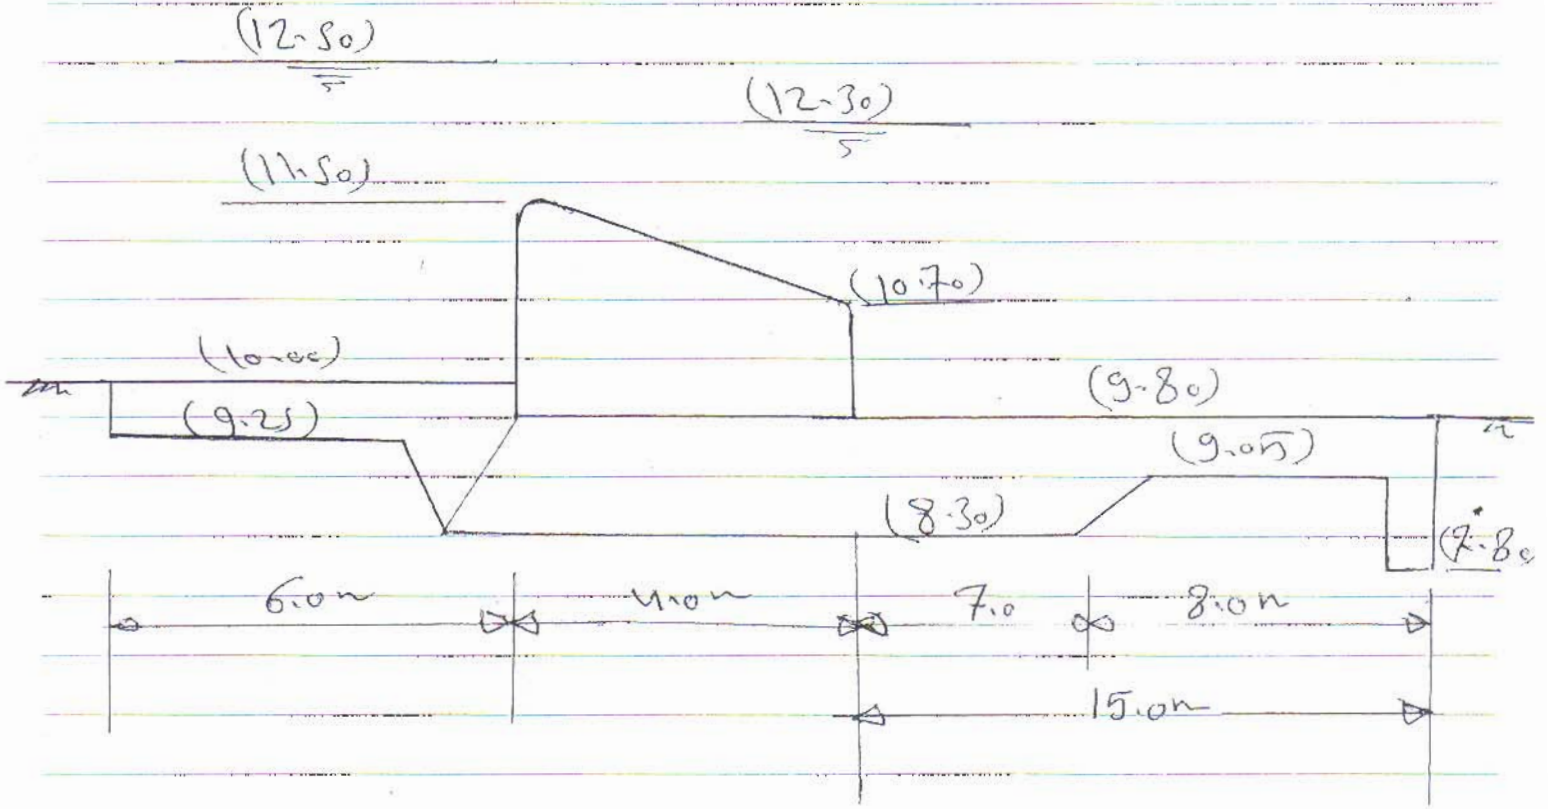 (12.50)
(12.30)
(11.50)
(10.70)
(10.00)
(9.80)
(9.25)
(9.05)
(8.30)
(7.80
6.0m
4.0m
7.0
8.0m
15.0m